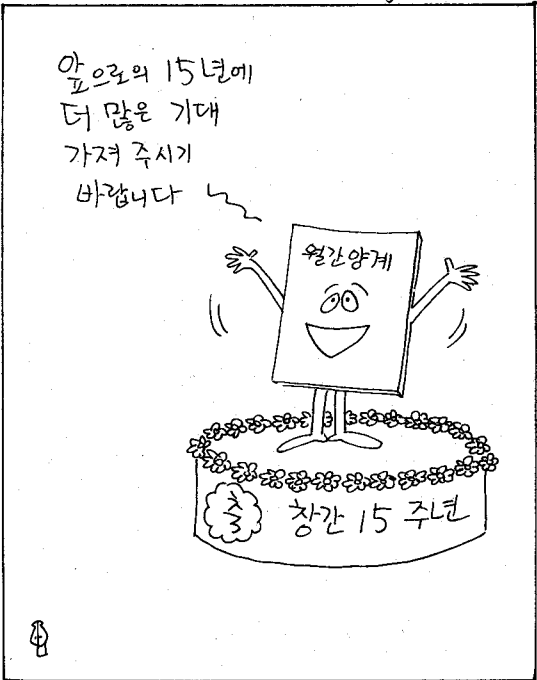 앞으로의 15년에
더 많은 기대
가져 주시기
바랍니다
월간양계
축 창간 15 주년